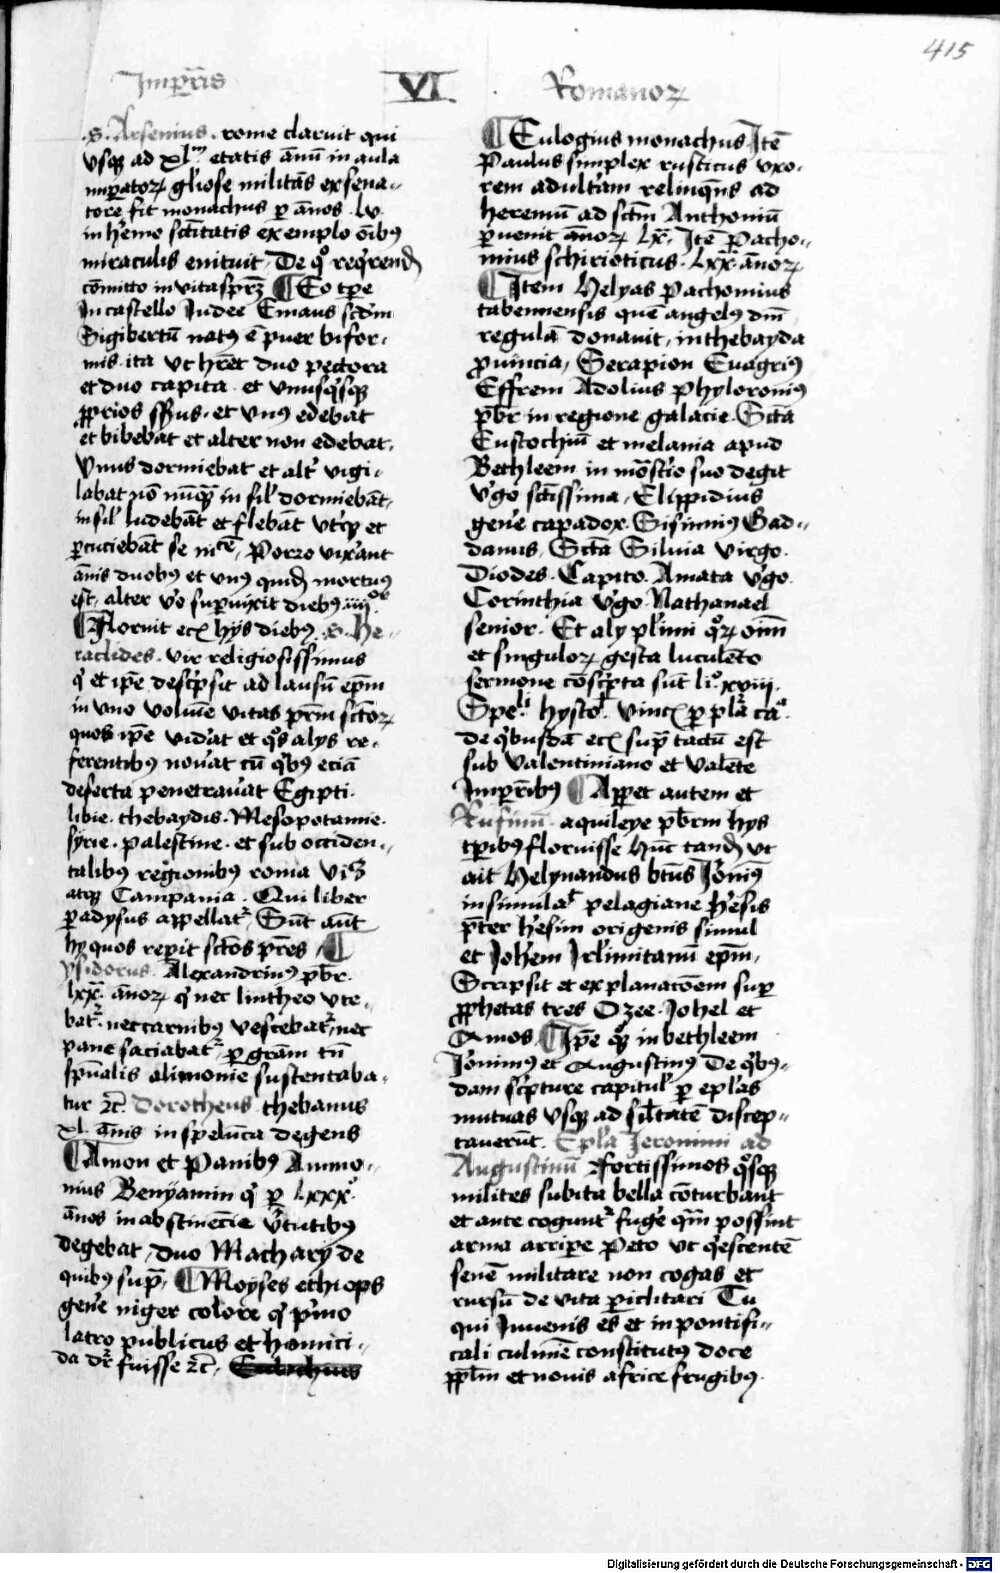 415
Imp̄ris VI Romanoꝝ
.S. Arsenius. rome claruit qui
vsqꝫ ad xlm̄ etatis ānū in aula
imp̄atoꝝ gl̄iose militās ex sena-
tore fit monachus ꝑ ānos .lv.
in h̄emo sc̄titatis exemplo oībꝰ
miraculis enituit, De qͦ reqrend̄
cōmitto in vitaspr̄ꝫ ¶ Eo tp̄e
In castello Iudee Emaus scd̄m
Sigibertū natꝰ ē puer bifor-
mis. ita vt hr̄et duo pectora
et duo capita. et vnusqͥsqꝫ
ꝓprios sēsus. et vnꝰ edebat
et bibebat et alter non edebat.
Vnus dormiebat et alt̄ vigi-
labat nō nūqꝫ in sil̄ dormiebāt,
in sil̄ ludebāt et flebāt vtqꝫ et
ꝑcuciebāt se inicē, Porro vixant
ānis duobꝰ et vnꝰ quid̄ mortuꝰ
est, alter v̄o supuixit diebꝰ iiijor
¶ Floruit ecꝫ hijs diebꝰ .S. He-
raclides. vir religiosissimus
qͥ et ip̄e desc̄psit ad lausū ep̄m
in vno volūīe vitas pr̄m sc̄toꝝ
quos ip̄e vid̄at et qͦs alijs re-
ferentibꝰ nou̅at cū qͥbꝰ eciā
deserta penetrau̅at Egipti.
libie. thebaydis. Mesopotamie.
syrie. palestine. et sub occiden-
talibꝰ regionibꝰ roma vi3
atqꝫ Campania. Qui liber
ꝑadysus appellatr̄, Sūt aūt
hij quos reperit sc̄tos pr̄es, ¶
ysidorus. Alexandrinꝰ pb̄r.
lxx. ānoꝝ qͥ nec lintheo vte-
batr̄. nec carnibꝰ vescebatr̄, nec
pane saciabatr̄, ꝑ grām tn̄
spūalis alimonie sustentaba-
tur ⁊c̄. dorotheus thebanus
xl. ānis in spelūca degens
¶ Amon et Panibꝰ Ammo-
nius Benyamin qͥ ꝑ lxxx.
ānos in abstinēcie v̄tutibꝰ
degebat, duo Macharij de
quibꝰ sup̄, ¶ Moyses ethiops
gen̄e niger colore qͥ pͥmo
latro publicus et homici-
da dr̄ fuisse ⁊c̄.
¶ Eulogius monachus Itē
Paulus simplex rusticus vxo-
rem adult̄am relinqns ad
heremū ad sc̄tm Anthoniū
ꝑuenit ānoꝝ lx. Itē Pacho-
mius schirioticus. lxx. ānoꝝ
¶ Item Helyas Pachomius
tabennensis que angelꝰ dn̄i
regulā donauit, in thebayda
ꝓuincia, Serapion Euagriꝰ
Effrem Adolius Phyloroniꝰ
pb̄r in regione galacie. Sc̄ta
Eustochiū et melania apud
Bethleem in mōst̄io suo degit
v̄go sc̄tissima, Elippidius
gen̄e capadox. Sisinniꝰ Gad-
danus, Sc̄ta Siluia virgo.
Diodes. Capito. Amata v̄go.
Corinthia v̄go. Nathanael
senior. Et alij pl̄imi qͦꝝ oīm
et singuloꝝ gesta luculēto
sermone cōsc̄pta sūt li.ͦ xviii.
Spe.li hystol̄. vincꝫ ꝑ pl̄a ca.a
de qͥbusdā ecꝫ sup̄ tactū est
sub Valentiniano et Valēte
Imp̄ribꝰ ¶ Apparet autem et
Rufinū. aquileye pb̄rm hijs
tꝑibꝰ floruisse Hūc tand̄ vt
ait Helynandus btūs Iōnīꝰ
insimulat pelagiane h̄esis
p̄ter h̄esim origenis simul
et Ioh̄em Irl̄imitanū ep̄m,
Scripsit et explanacōem sup
ꝓphetas tres Ozee. Iohel et
Amos, ¶ Ip̄e qͦqꝫ in bethleem
Iōnimꝰ et Augustinꝰ De qͥbꝰ-
dam sc̄pture capitul̄ ꝑ epl̄as
mutuas vsqꝫ ad sil̄tatē discep-
tauerūt. Epl̄a Ieronimi ad
Augustinū Fortissimos qͦsqꝫ
milites subita bella cōturbant
et ante cogūtr̄ fuḡe qm̄ possint
arma arripere Peto vt qͥescentē
senē militare non cogas et
rursū de vita ꝑiclitari Tu
qui Iuuenis es et in pontifi-
cali culmīe constitutꝰ doce
ppl̄m et nouis africe frugibꝰ.
Digitalisierung gefördert durch die Deutsche Forschungsgemeinschaft - DFG